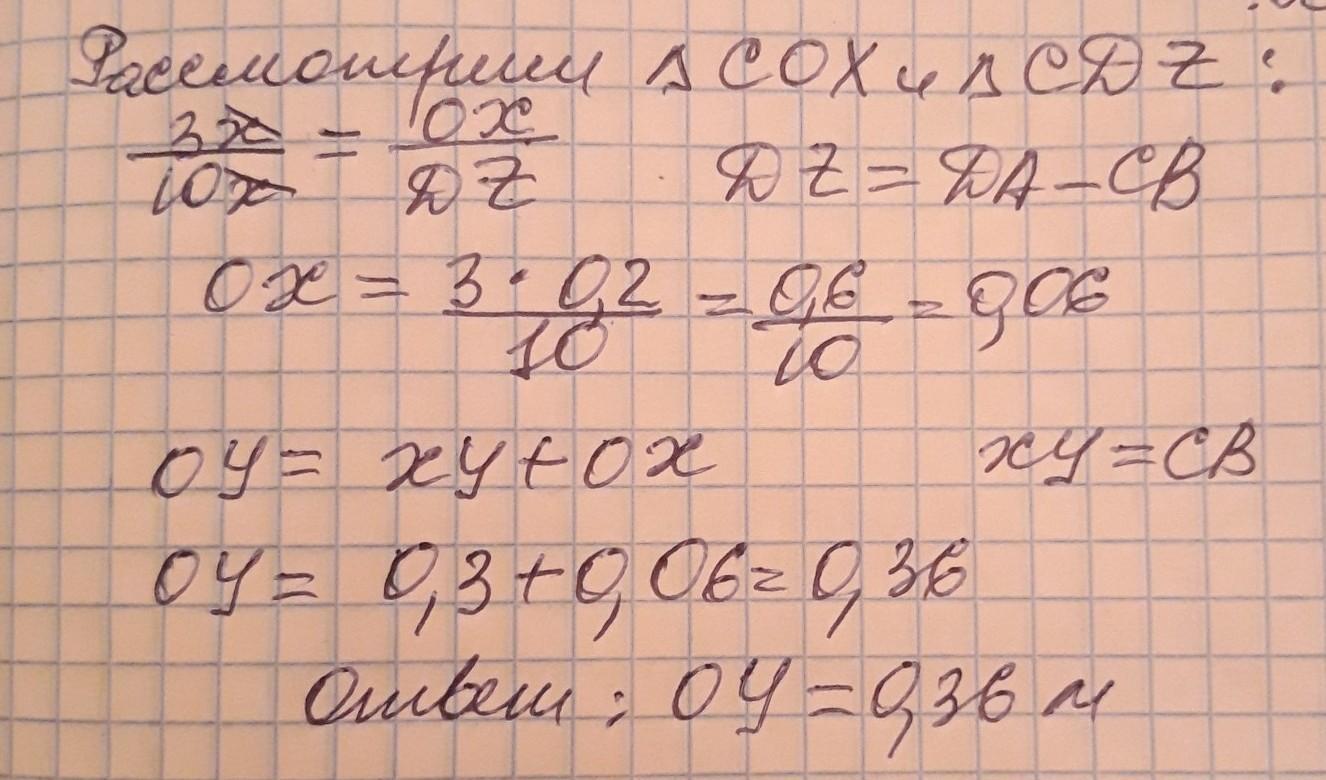 Рассмотрим Δ COX и Δ CDZ :
3x/10x = OX/DZ DZ = DA – CB
OX = 3 · 0,2/10 = 0,6/10 = 0,06
OY = XY + OX XY = CB
OY = 0,3 + 0,06 = 0,36
Ответ : OY = 0,36 м